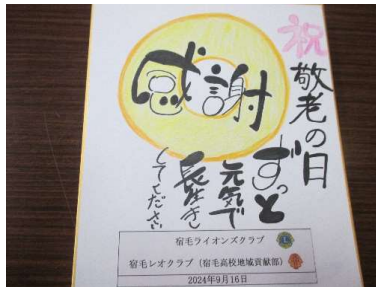 祝
敬老の日
感謝
ずっと
元気で
長生き
してください
宿毛ライオンズクラブ
宿毛レオクラブ（宿毛高校地域貢献部）
2024年9月16日